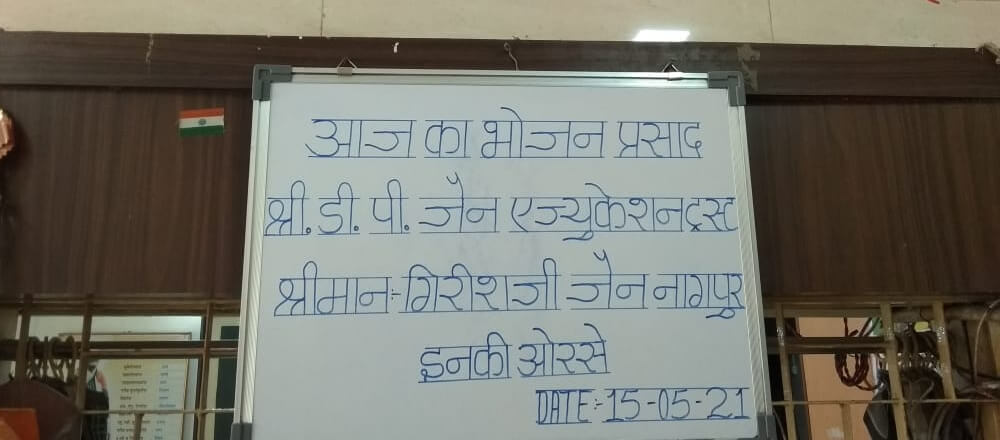 आज का भोजन प्रसाद
श्री. डी. पी. जैन एज्युकेशन ट्रस्ट
श्रीमान:-गिरीशजी जैन नागपुर
इनकी ओरसे
DATE:-15-05-21